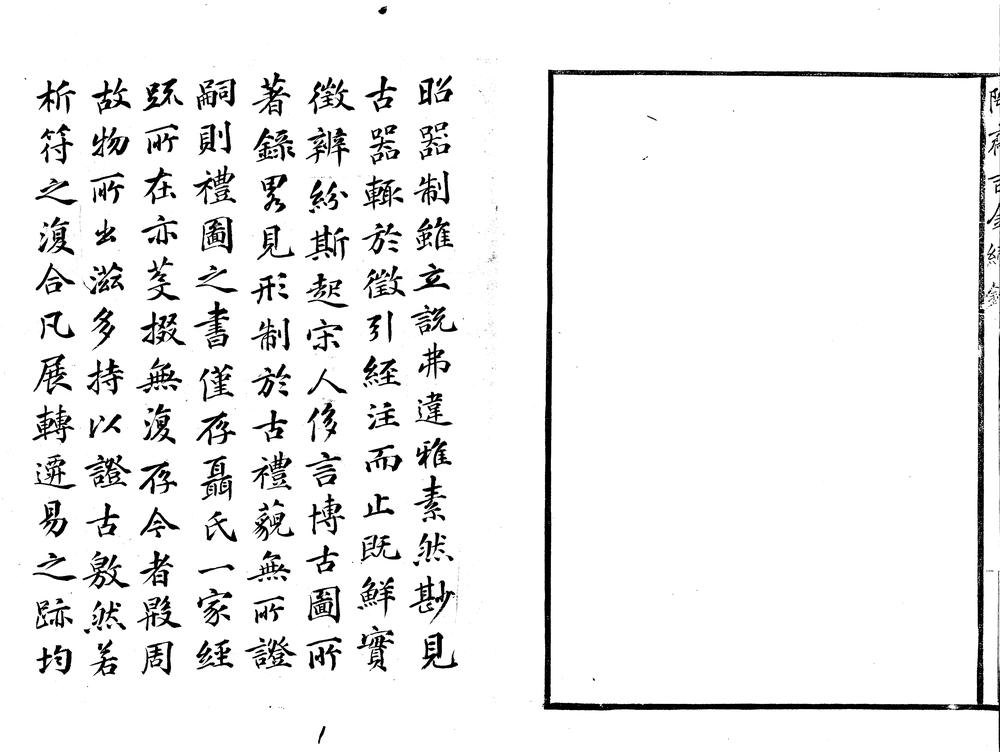 陶齋吉金續錄
昭器制雖立說弗違雅素然尟見
古器輒於徵引經注而止既鮮實
徵辨紛斯起宋人侈言博古圖所
著錄畧見形制於古禮藐無所證
嗣則禮圖之書僅存聶氏一家經
疏所在亦芟掇無復存今者殷周
故物所出滋多持以證古敫然若
析符之復合凡展轉遷易之跡均
1